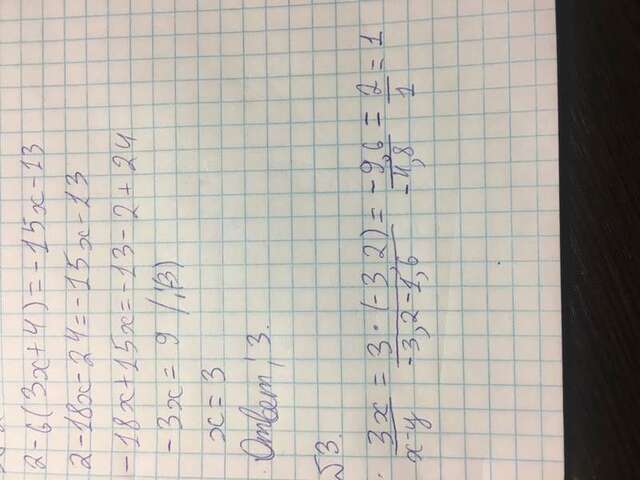 2-6(3x+4)=-15x-13
2-18x-24=-15x-13
-18x+15x=-13-2+24
-3x= 9 /:(3)
x=3
Ответ: 3.
√3.
3x/x-y = 3·(-3,2)/-3,2-1,6 = -9,6/-4,8 = 2/1 = 1